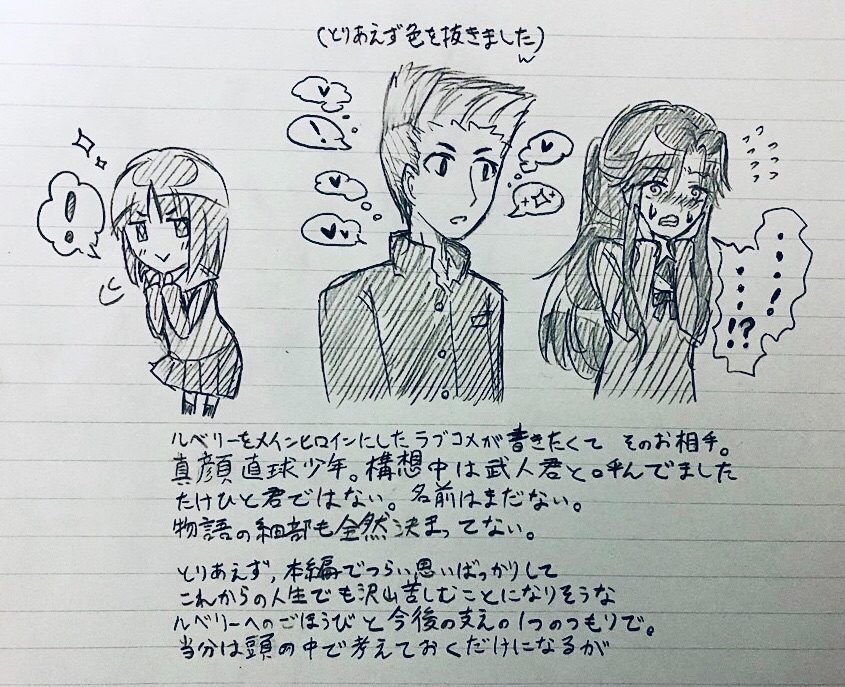 (とりあえず色を抜きました)
w
!
!
……!
…!?
ルベリーをメインヒロインにしたラブコメが書きたくて そのお相手。
真顔直球少年。構想中は武人君と呼んでました
たけひと君ではない。名前はまだない。
物語の細部も全然決まってない。
とりあえず、本編でつらい思いばっかりして
これからの人生でも沢山苦しむことになりそうな
ルベリーへのごほうびと今後の支えの1つのつもりで。
当分は頭の中で考えておくだけになるが